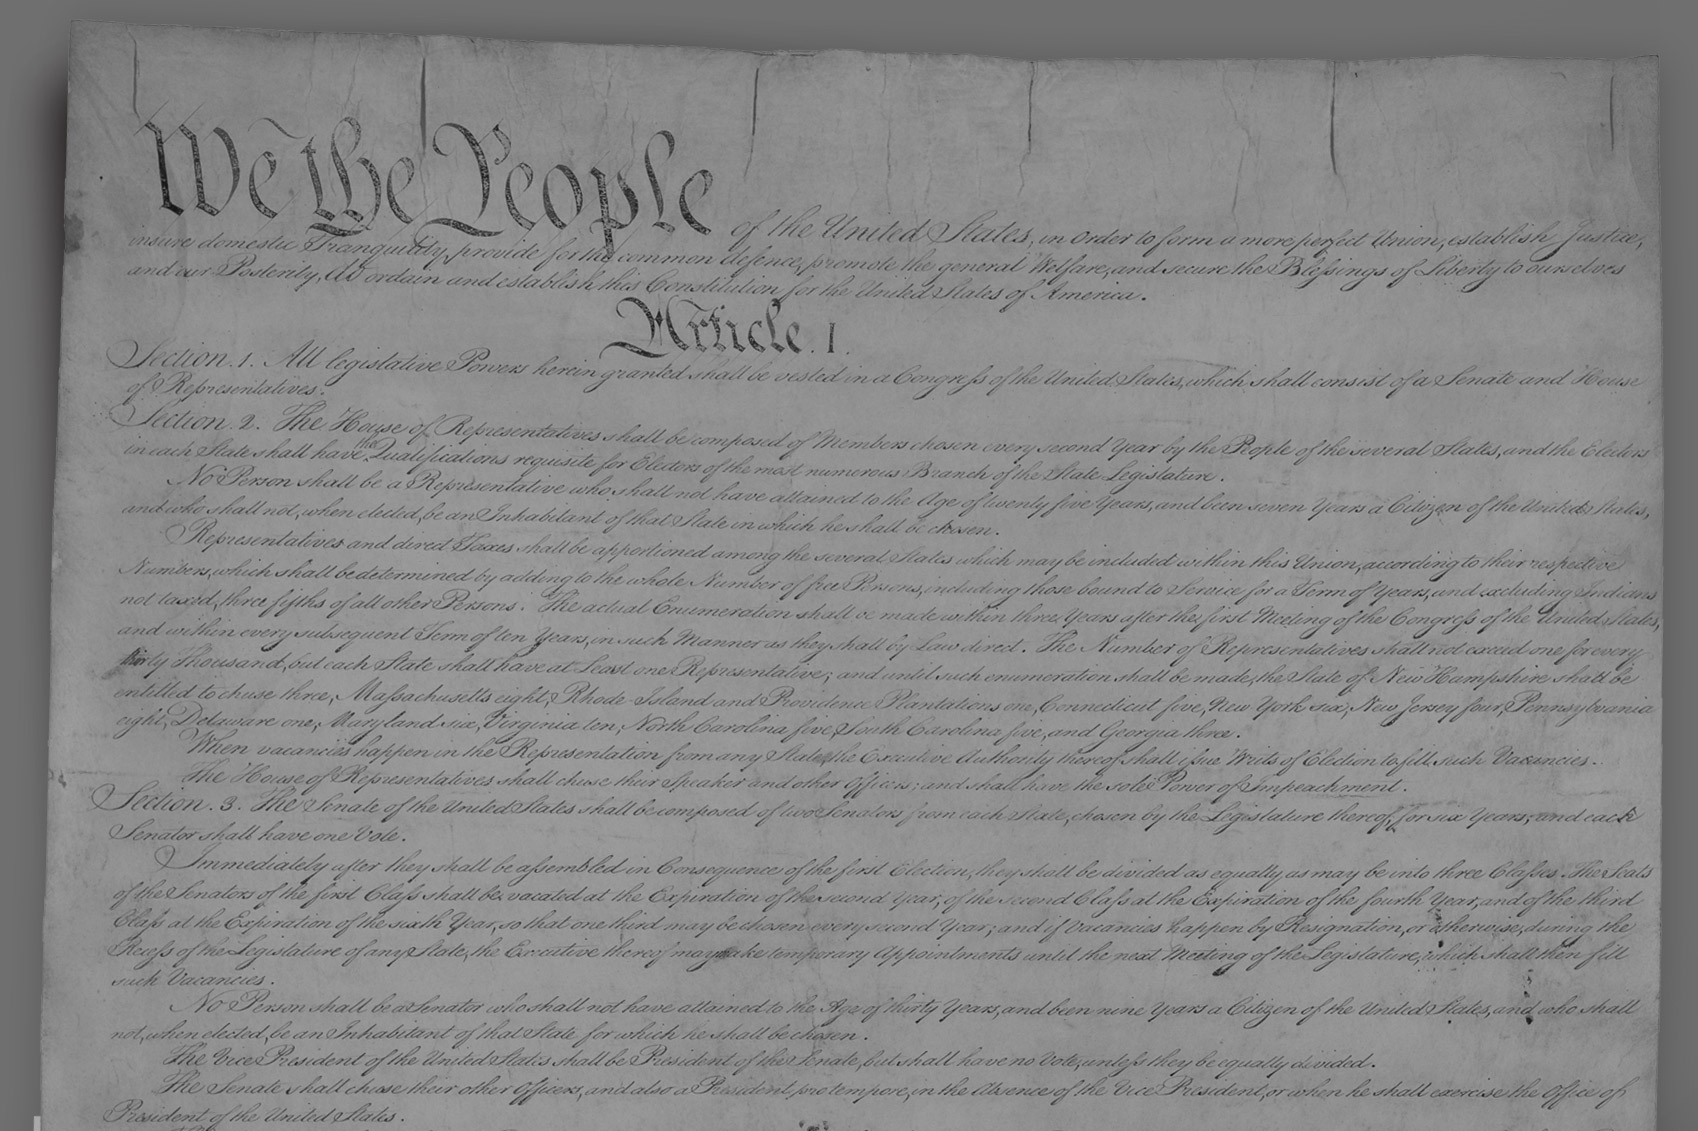 We the People of the United States, in Order to form a more perfect Union, establish Justice,
insure domestic Tranquility, provide for the common defence, promote the general Welfare, and secure the Blessings of Liberty to ourselves
and our Posterity, do ordain and establish this Constitution for the United States of America.
Article. I.
Section. 1. All legislative Powers herein granted shall be vested in a Congress of the United States, which shall consist of a Senate and House
of Representatives.
Section. 2. The House of Representatives shall be composed of Members chosen every second Year by the People of the several States, and the Electors
in each State shall have the Qualifications requisite for Electors of the most numerous Branch of the State Legislature.
No Person shall be a Representative who shall not have attained to the Age of twenty five Years, and been seven Years a Citizen of the United States,
and who shall not, when elected, be an Inhabitant of that State in which he shall be chosen.
Representatives and direct Taxes shall be apportioned among the several States which may be included within this Union, according to their respective
Numbers, which shall be determined by adding to the whole Number of free Persons, including those bound to Service for a Term of Years, and excluding Indians
not taxed, three fifths of all other Persons. The actual Enumeration shall be made within three Years after the first Meeting of the Congress of the United States,
and within every subsequent Term of ten Years, in such Manner as they shall by Law direct. The Number of Representatives shall not exceed one for every
thirty Thousand, but each State shall have at Least one Representative; and until such enumeration shall be made, the State of New Hampshire shall be
entitled to chuse three, Massachusetts eight, Rhode-Island and Providence Plantations one, Connecticut five, New-York six, New Jersey four, Pennsylvania
eight, Delaware one, Maryland six, Virginia ten, North Carolina five, South Carolina five, and Georgia three.
When vacancies happen in the Representation from any State, the Executive Authority thereof shall issue Writs of Election to fill such Vacancies.
The House of Representatives shall chuse their Speaker and other Officers; and shall have the sole Power of Impeachment.
Section. 3. The Senate of the United States shall be composed of two Senators from each State, chosen by the Legislature thereof, for six Years; and each
Senator shall have one Vote.
Immediately after they shall be assembled in Consequence of the first Election, they shall be divided as equally as may be into three Classes. The Seats
of the Senators of the first Class shall be vacated at the Expiration of the second Year, of the second Class at the Expiration of the fourth Year, and of the third
Class at the Expiration of the sixth Year, so that one third may be chosen every second Year; and if Vacancies happen by Resignation, or otherwise, during the
Recess of the Legislature of any State, the Executive thereof may make temporary Appointments until the next Meeting of the Legislature, which shall then fill
such Vacancies.
No Person shall be a Senator who shall not have attained to the Age of thirty Years, and been nine Years a Citizen of the United States, and who shall
not, when elected, be an Inhabitant of that State for which he shall be chosen.
The Vice President of the United States shall be President of the Senate, but shall have no Vote, unless they be equally divided.
The Senate shall chuse their other Officers, and also a President pro tempore, in the Absence of the Vice President, or when he shall exercise the Office of
President of the United States.